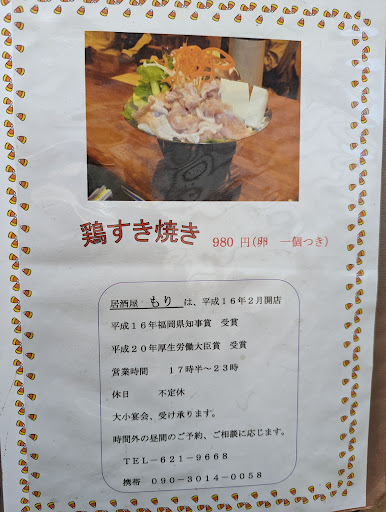 鶏すき焼き 980 円(卵 一個つき)
居酒屋 もり は、平成16年2月開店
平成16年福岡県知事賞 受賞
平成20年厚生労働大臣賞 受賞
営業時間 17時半~23時
休日 不定休
大小宴会、受け承ります。
時間外の昼間のご予約、ご相談に応じます。
TEL-621-9668
携帯 090-3014-0058